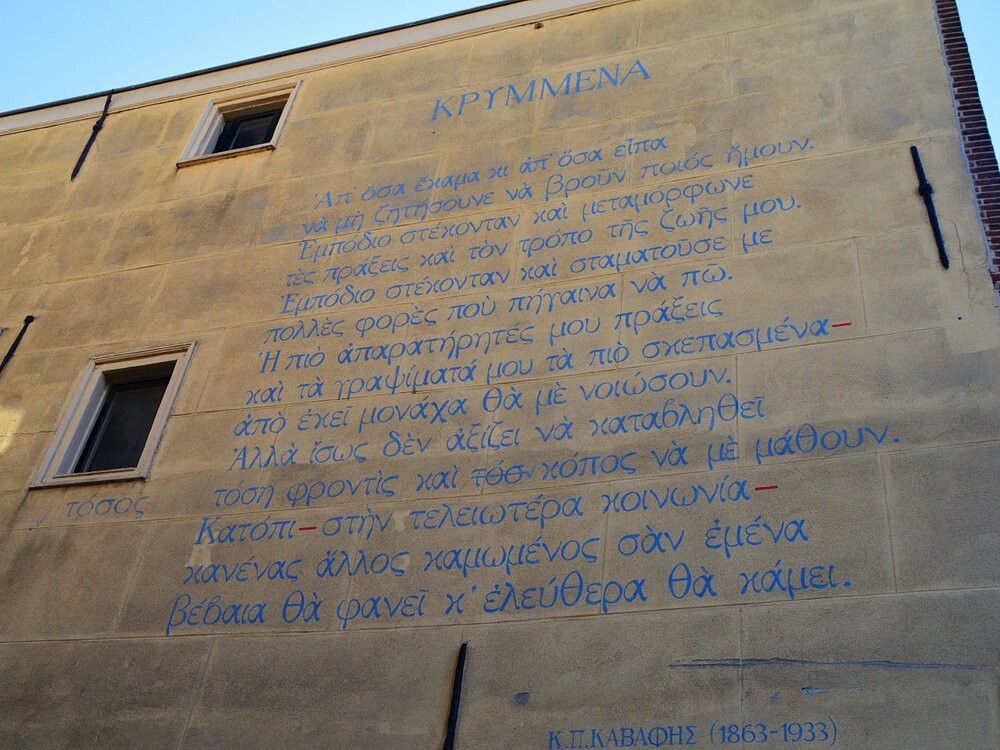 ΚΡΥΜΜΕΝΑ
Ἀπ' ὅσα ἔκαμα κι ἀπ' ὅσα εἶπα
νὰ μὴ ζητήσουνε νὰ βροῦν ποιός ἤμουν.
Ἐμπόδιο στέκονταν καὶ μεταμόρφωνε
τὲς πράξεις καὶ τὸν τρόπο τῆς ζωῆς μου.
Ἐμπόδιο στέκονταν καὶ σταματοῦσε με
πολλὲς φορὲς ποὺ πήγαινα νὰ πῶ.
Ἡ πιὸ ἀπαρατήρητές μου πράξεις
καὶ τὰ γραψίματά μου τὰ πιὸ σκεπασμένα—
ἀπὸ ἐκεῖ μονάχα θὰ μὲ νοιώσουν.
Ἀλλὰ ἴσως δὲν ἀξίζει νὰ καταβληθεῖ
τόση φροντὶς καὶ τόσ κόπος νὰ μὲ μάθουν.
τόσος
Κατόπι—στὴν τελειωτέρα κοινωνία—
κανένας ἄλλος καμωμένος σὰν ἐμένα
βέβαια θὰ φανεῖ κ' ἐλεύθερα θὰ κάμει.
Κ.Π.ΚΑΒΑΦΗΣ (1863-1933)